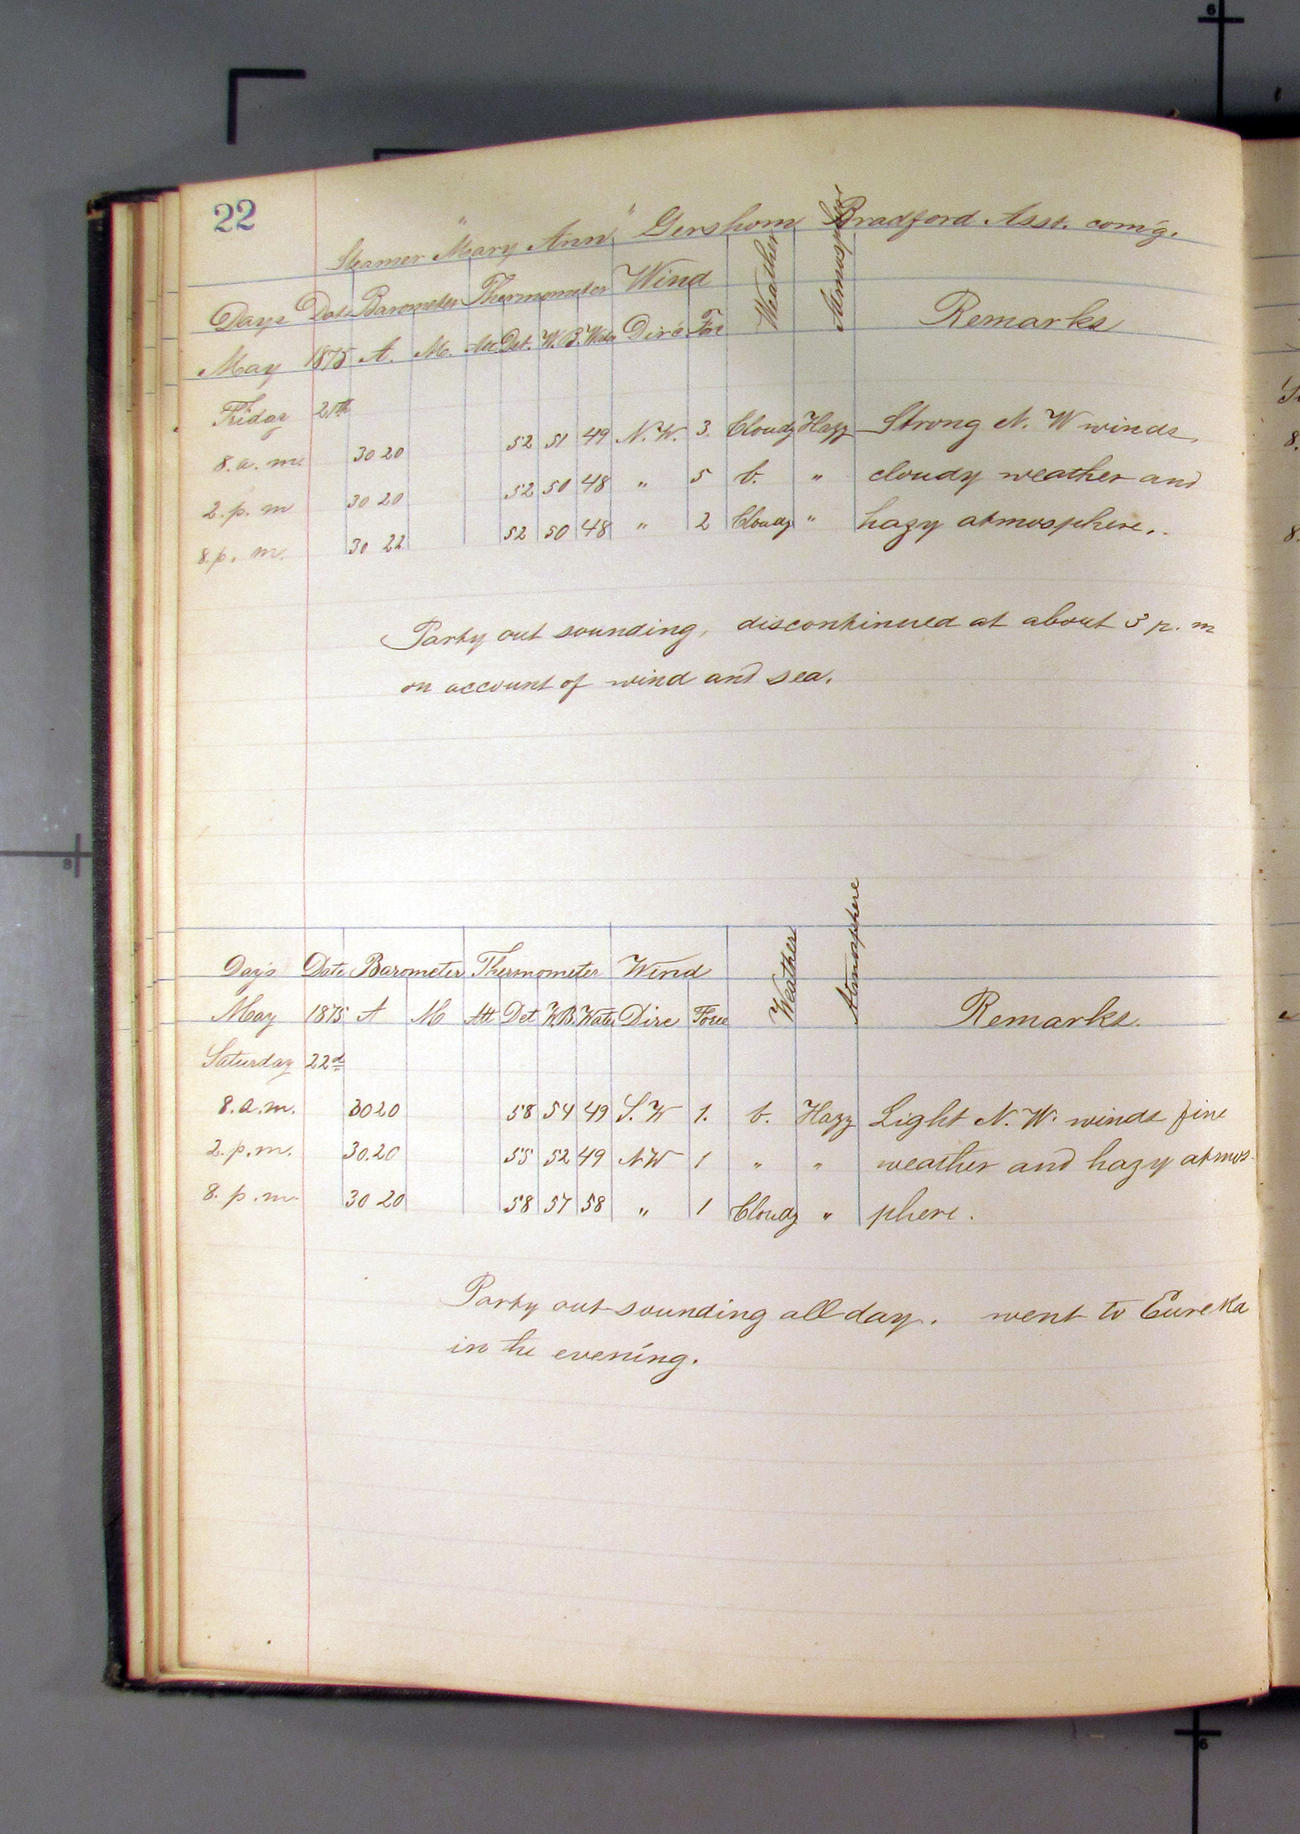 22
Steamer "Mary Ann" Gershom Bradford Asst. com'g.
Days Date Barometer Thermometer Wind Weather Atmosphere Remarks
May 1875 A. M. Att Det. W.B. Water Dirc Foc
Friday 21st
8. a. m. 30 20 52 51 49 N. W. 3. Cloudy Hazy Strong N. W winds,
2. p. m 30 20 52 50 48 " 5 b. " cloudy weather and
8. p. m. 30 22 52 50 48 " 2 Cloudy " hazy atmosphere.
Party out sounding, discontinued at about 3 p. m
on account of wind and sea.
Day's Date Barometer Thermometer Wind Weather Atmosphere
May 1875 A M Att Det W.B. Water Dirc Force Remarks.
Saturday 22d
8. a. m. 30 20 58 54 49 S. W 1. b. Hazy Light N. W. winds fine
2. p. m. 30.20 55 52 49 N W 1 " " weather and hazy atmos-
8. p. m. 30 20 58 57 58 " 1 Cloudy " phere.
Party out sounding all day. went to Eureka
in the evening.